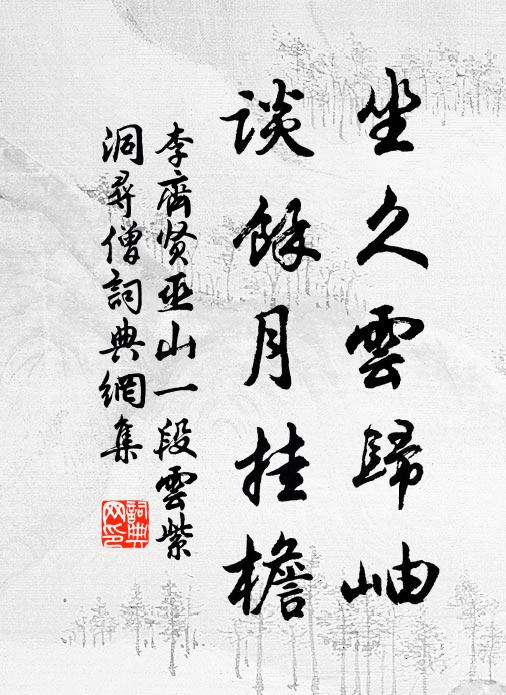 坐久雲歸岫
談餘月挂檐
李齊贤巫山一段雲紫
洞尋僧詞典網集
詞典
网印